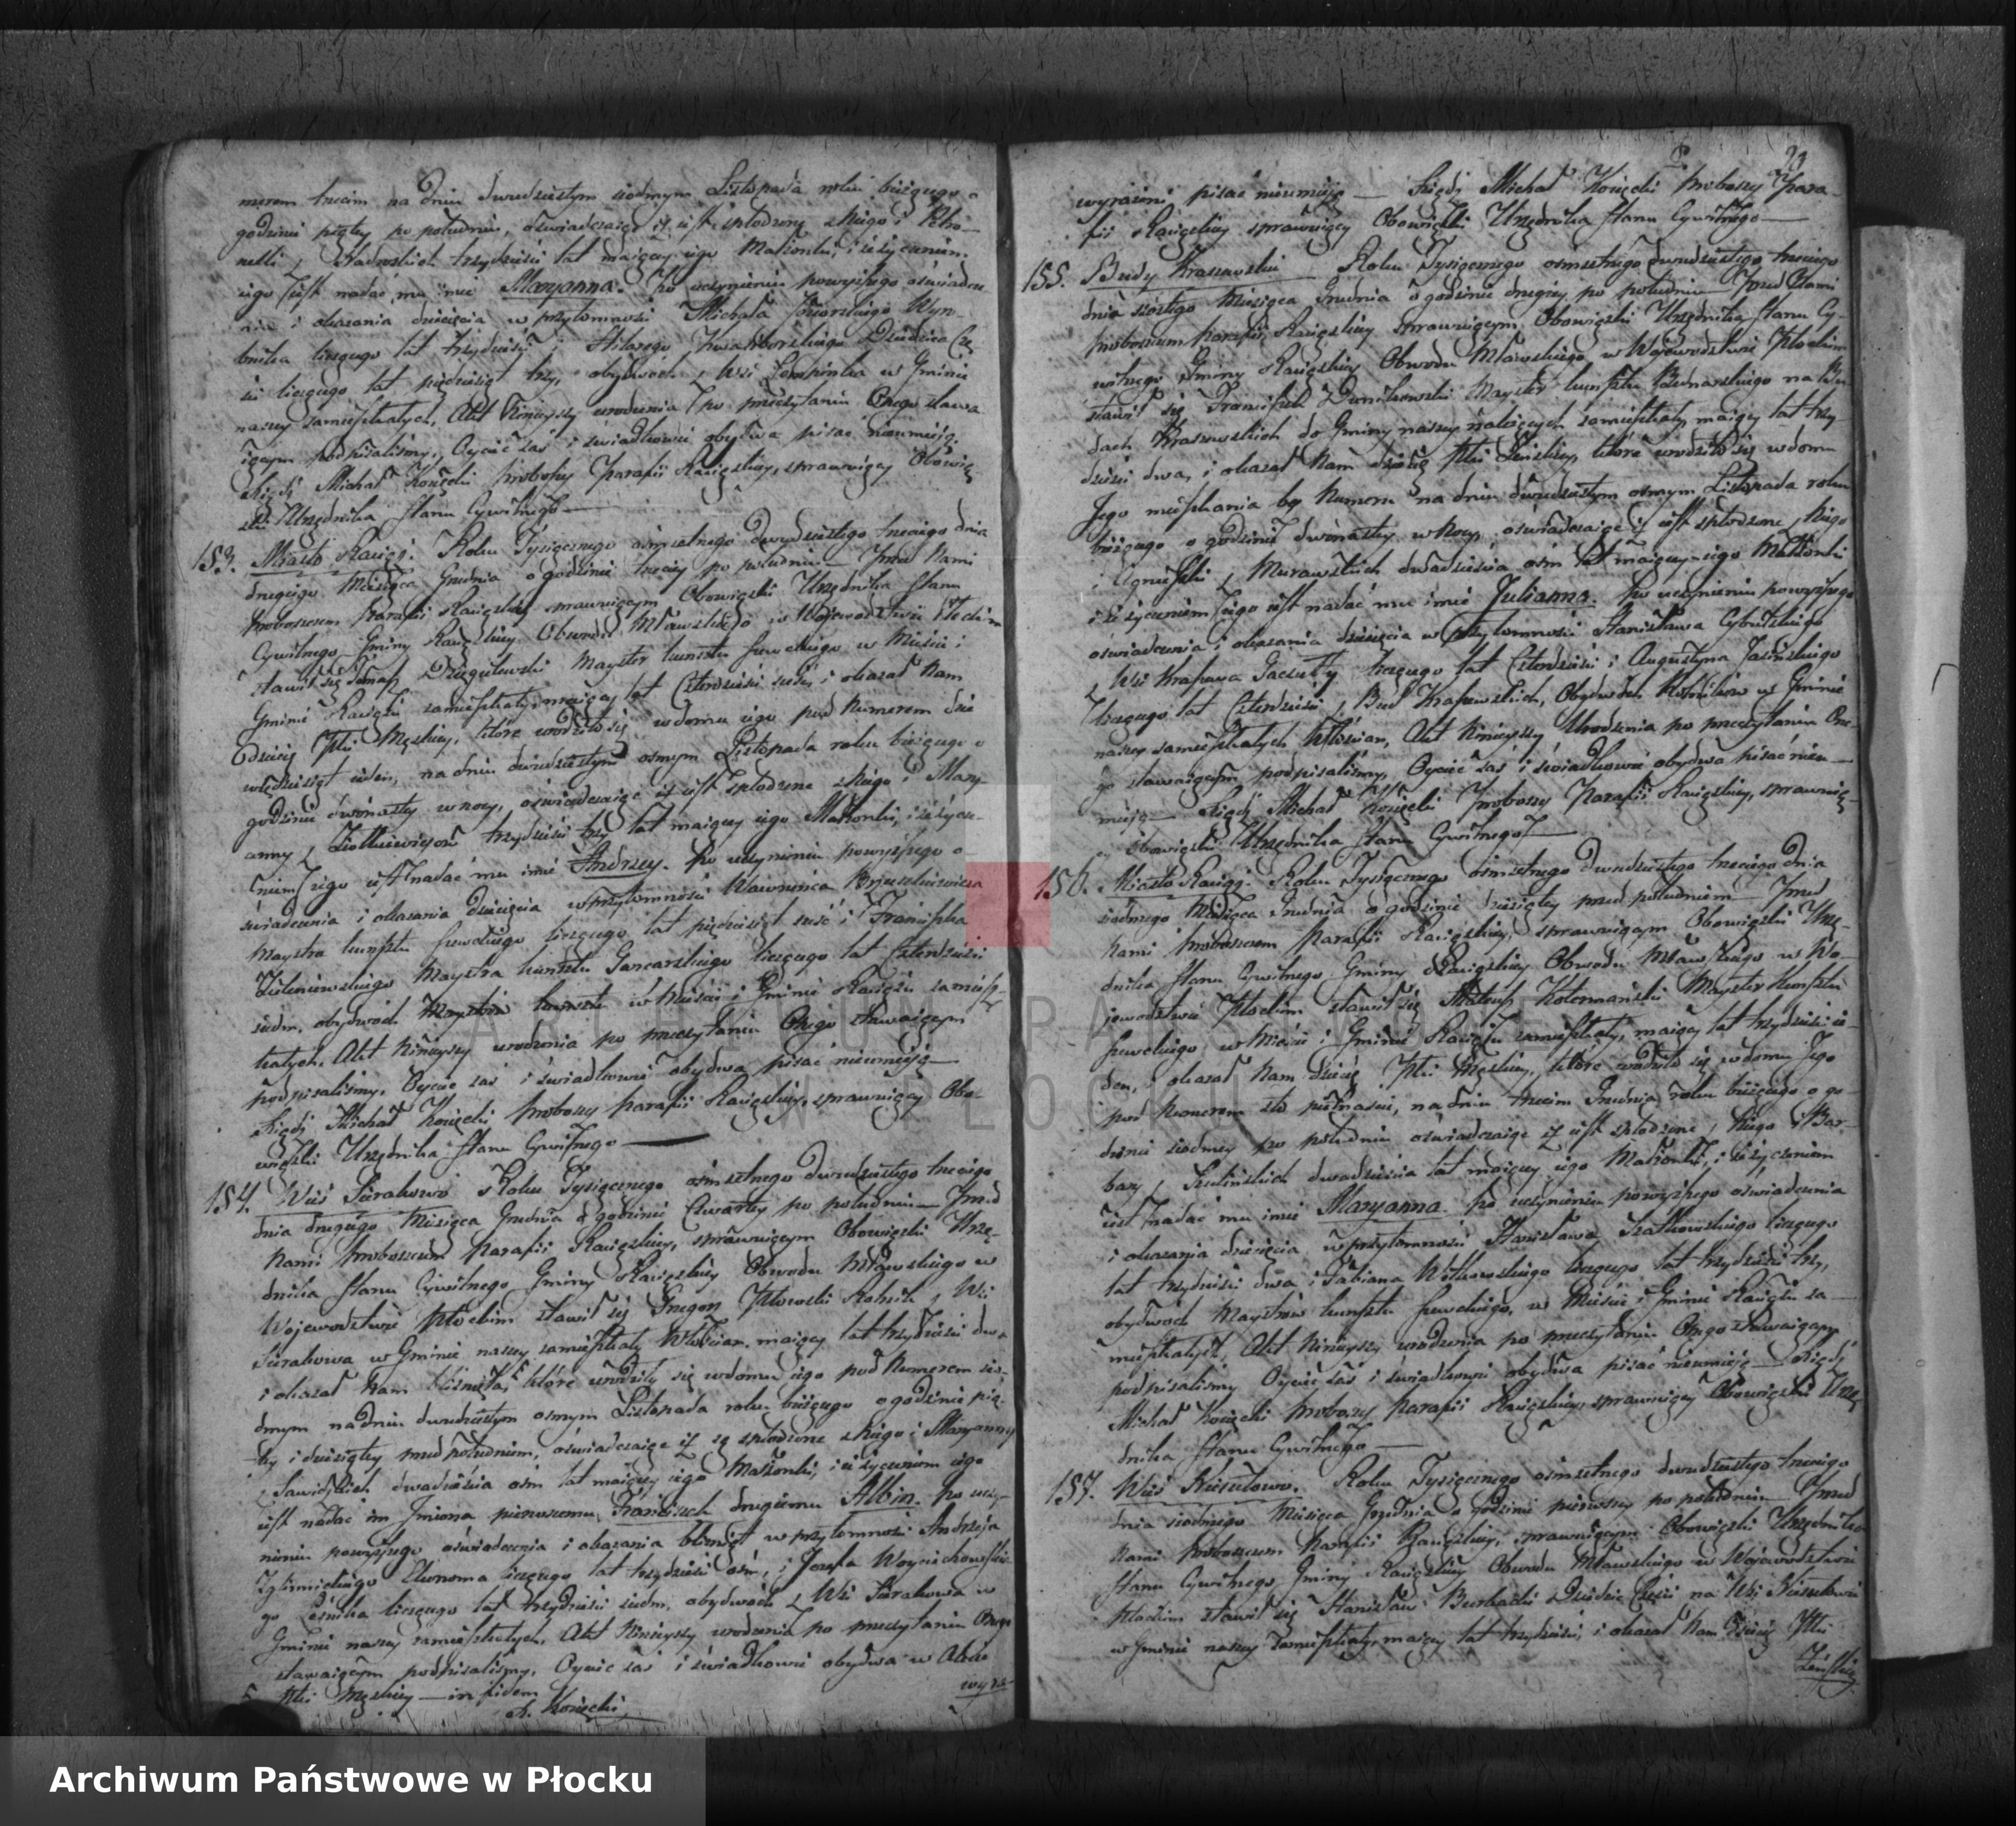 merem trzecim na dniu dwudziestym siódmym Listopada roku bieżącego o
godzinie piątey po południu, oświadczaiąc iż iest spłodzone z Niego i Petro-
nelli z trzydzieści lat maiącey iego Małżonki, i iż życzeniem
iego iest nadać mu imię Maryanna. Po uczynieniu powyższego oświadcze
nia i okazania dziecięcia w przytomności Michała Wyro-
bnika liczącego lat trzydzieści i Hilarego Dziedzica Czę
ści liczącego lat pięćdziesiąt trzy, obydwóch z Wsi w Gminie
naszey zamieszkałych, Akt Ninieyszy urodzenia po przeczytaniu Onego stawa
iącym podpisaliśmy, Oyciec zaś i świadkowie obydwa pisać nieumieią.
Xiądz Michał Konięcki Proboszcz Parafii Raciąskiey, sprawuiący Obowią
zki Urzędnika Stanu Cywilnego
153. Miasto Raciąż. Roku Tysięcznego ośmsetnego dwudziestego trzeciego dnia
drugiego Miesiąca Grudnia o godzinie trzeciey po południu Przed Nami
Proboszczem Parafii Raciąskiey sprawuiącym Obowiązki Urzędnika Stanu
Cywilnego Gminy Raciąskiey Obwodu Mławskiego w Województwie Płockim
stawił się Tomasz Dzięgielewski Mayster kunsztu szewckiego w Mieście i
Gminie Raciążu zamieszkały, maiący lat Czterdzieści sześć, i okazał Nam
Dziecię Płci Męskiey, które urodziło się w domu iego pod Numerem dzie
więdziesiąt ieden, na dniu dwudziestym osmym Listopada roku bieżącego o
godzinie dwónastey w nocy, oświadczaiąc iż iest spłodzone z Niego i Mary-
anny z Ziółkiewiczów trzydzieści trzy lat maiącey iego Małżonki, i iż życze-
niem iego iest nadać mu imię Andrzey. Po uczynieniu powyższego o-
świadczenia i okazania dziecięcia w przytomności Wawrzeńca
Maystra kunsztu szewckiego liczącego lat pięćdziesiąt sześć i Franciszka
Zieleniewskiego Maystra kunsztu Garcarskiego liczącego lat Czterdzieści
siedm, obydwóch Maystrów kunsztu w Mieście i Gminie Raciążu zamiesz-
kałych. Akt Ninieyszy urodzenia po przeczytaniu Onego stawaiącym
podpisaliśmy. Oyciec zaś i świadkowie obydwa pisać nieumieią
Xiądz Michał Konięcki Proboszcz Parafii Raciąskiey, sprawuiący Obo-
wiązki Urzędnika Stanu Cywilnego
154. Wieś Sierakowo Roku Tysięcznego ośmsetnego dwudziestego trzeciego
dnia drugiego Miesiąca Grudnia o godzinie Czwartey po południu Przed
Nami Proboszczem Parafii Raciąskiey, sprawuiącym Obowiązki Urzę-
dnika Stanu Cywilnego Gminy Raciąskiey Obwodu Mławskiego w
Województwie Płockim stawił się Grzegorz Rolnik z Wsi
Sierakowa w Gminie naszey zamieszkały Włościan, maiący lat trzydzieści dwa
i okazał Nam bliźnięta, które urodziły się w domu iego pod Numerem sió-
dmym na dniu dwudziestym osmym Listopada roku bieżącego o godzinie pią-
tey i dziesiątey przed południem, oświadczaiąc iż są spłodzone z Niego i Maryanny
z Sawickich dwadzieścia ośm lat maiącey iego Małżonki, i iż życzeniem iego
iest nadać im Imiona pierwszemu Franciszek drugiemu Albin. Po uczy-
nieniu powyższego oświadczenia i okazania bliźniąt w przytomności Andrzeja
Zglinickiego Ekonoma liczącego lat trzydzieści ośm, i Jozefa Woyciechowskie
go Leśnika liczącego lat trzydzieści siedm, obydwóch z Wsi Sierakowa w
Gminie naszey zamieszkałych, Akt Ninieyszy urodzenia po przeczytaniu Onego
stawaiącym podpisaliśmy. Oyciec zaś i świadkowie obydwa w Akcie
Płci Męskiey — in fidem wyra-
X. Konięcki
23
wyrażeni pisać nieumieią — Xiądz Michał Konięcki Proboszcz Para-
fii Raciąskiey sprawuiący Obowiązki Urzędnika Stanu Cywilnego
155. Budy Kraszewskie Roku Tysięcznego ośmsetnego dwudziestego trzeciego
dnia szóstego Miesiąca Grudnia o godzinie drugiey po południu Przed Nami
Proboszczem Parafii Raciąskiey sprawuiącym Obowiązki Urzędnika Stanu Cy-
wilnego Gminy Raciąskiey Obwodu Mławskiego w Województwie Płockim
stawił się Franciszek Mayster kunsztu Bednarskiego na Bu
dach Kraszewskich do Gminy naszey należących zamieszkały, maiący lat trzy
dzieści dwa, i okazał Nam dziecię Płci Żeńskiey, które urodziło się w domu
Jego mieszkania bez Numeru na dniu dwudziestym osmym Listopada roku
bieżącego o godzinie dwónastey w Nocy, oświadczaiąc iż iest spłodzone z Niego
i Agnieszki z Murawskich dwadzieścia ośm lat maiącey iego Małżonki
i iż życzeniem iego iest nadać mu imię Julianna. Po uczynieniu powyższego
oświadczenia i okazania dziecięcia w przytomności Stanisława Cybulskiego
z Wsi liczącego lat Czterdzieści i Augustyna Jasińskiego
liczącego lat Czterdzieści z Bud Kraszewskich, Obydwóch Rolników w Gminie
naszey zamieszkałych Włościan, Akt Ninieyszy Urodzenia po przeczytaniu One-
go stawaiącym podpisaliśmy, Oyciec zaś i świadkowie obydwa pisać nieu-
mieią — Xiądz Michał Konięcki Proboszcz Parafii Raciąskiey, sprawuią-
cy Obowiązki Urzędnika Stanu Cywilnego
156. Miasto Raciąż. Roku Tysięcznego ośmsetnego dwudziestego trzeciego dnia
siódmego Miesiąca Grudnia o godzinie dziesiątey przed południem Przed
Nami Proboszczem Parafii Raciąskiey, sprawuiącym Obowiązki Urzę-
dnika Stanu Cywilnego Gminy Raciąskiey Obwodu Mławskiego w Wo-
jewodztwie Płockim stawił się Mateusz Kotermański Mayster Kunsztu
szewckiego w Mieście i Gminie Raciążu zamieszkały, maiący lat trzydzieści ie-
den, i okazał Nam dziecię Płci Męskiey, które urodziło się w domu Jego
pod Numerem sto piętnaście, na dniu trzecim Grudnia roku bieżącego o go-
dzinie siódmey po południu oświadczaiąc iż iest spłodzone z Niego i Bar-
bary z dwadzieścia lat maiącey iego Małżonki, i iż życzeniem
iest nadać mu imię Maryanna. Po uczynieniu powyższego oświadczenia
i okazania dziecięcia w przytomności Stanisława Szatkowskiego liczącego
lat trzydzieści dwa i Fabiana Witkowskiego liczącego lat trzydzieści trzy,
obydwóch Maystrów kunsztu szewckiego, w Mieście i Gminie Raciążu za-
mieszkałych, Akt Ninieyszy urodzenia po przeczytaniu Onego stawaiącym
podpisaliśmy Oyciec zaś i świadkowie obydwa pisać nieumieią — Xiądz
Michał Konięcki Proboszcz Parafii Raciąskiey sprawuiący Obowiązki Urzę
dnika Stanu Cywilnego
157. Wieś Kiełulowo. Roku Tysięcznego ośmsetnego dwudziestego trzeciego
dnia siódmego Miesiąca Grudnia o godzinie pierwszey po południu Przed
Nami Proboszczem Parafii Raciąskiey, sprawuiącym Obowiązki Urzędnika
Stanu Cywilnego Gminy Raciąskiey Obwodu Mławskiego w Województwie
Płockim stawił się Stanisław Dziedzic Części na Wsi
w Gminie naszey zamieszkały, maiący lat trzydzieści, i okazał Nam Dziecię Płci
Żeńskiey
ARCHIWUM PAŃSTWOWE
W PŁOCKU
Archiwum Państwowe w Płocku